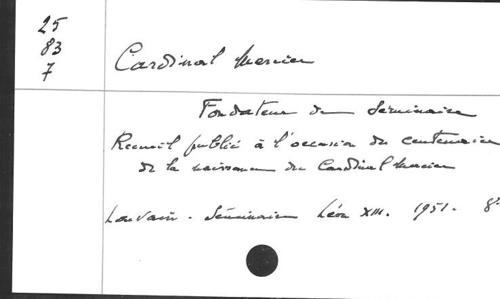 25
83
7
Cardinal Mercier
Fondateur du Séminaire
Recueil publié à l'occasion du centenaire
de la naissance du Cardinal Mercier
Louvain - Séminaire Léon XIII. 1951. 8°